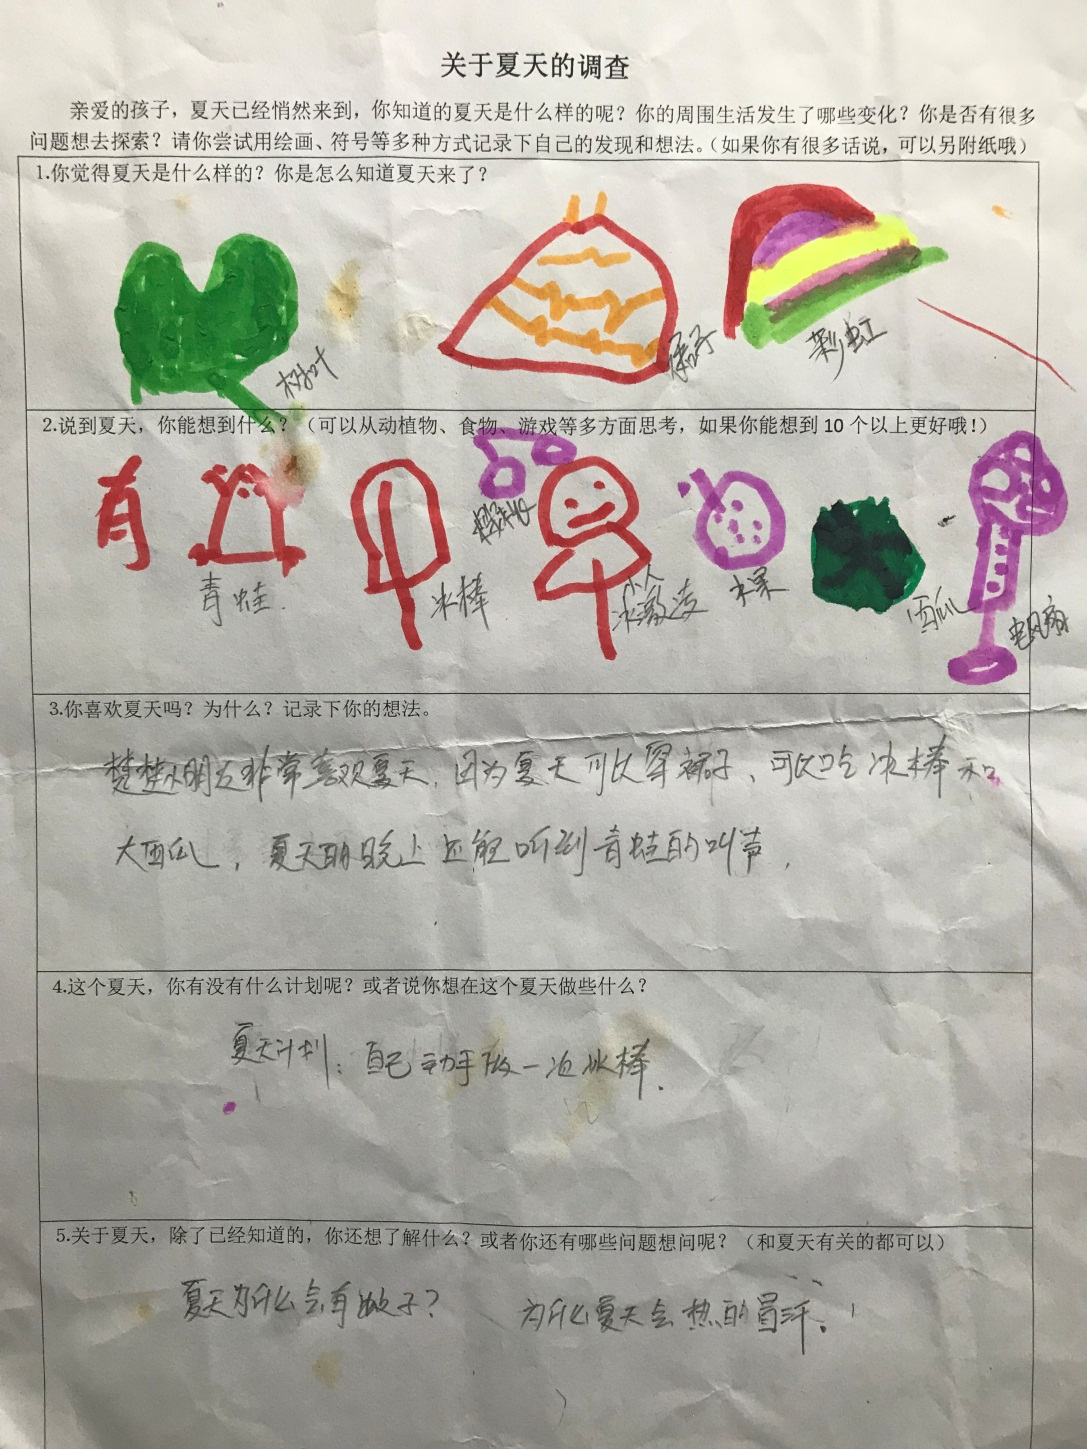 关于夏天的调查
亲爱的孩子，夏天已经悄然来到，你知道的夏天是什么样的呢？你的周围生活发生了哪些变化？你是否有很多
问题想去探索？请你尝试用绘画、符号等多种方式记录下自己的发现和想法。（如果你有很多话说，可以另附纸哦）
1.你觉得夏天是什么样的？你是怎么知道夏天来了？
树叶
裙子
彩虹
2.说到夏天，你能想到什么？（可以从动植物、食物、游戏等多方面思考，如果你能想到10个以上更好哦！）
有
青蛙
冰棒
小人
冰激凌
水果
西瓜
电风扇
3.你喜欢夏天吗？为什么？记录下你的想法。
非常喜欢夏天，因为夏天可以穿裙子、可以吃冰棒和
大西瓜，夏天的晚上还能听到青蛙的叫声，
4.这个夏天，你有没有什么计划呢？或者说你想在这个夏天做些什么？
夏天计划：自己动手做一次冰棒.
5.关于夏天，除了已经知道的，你还想了解什么？或者你还有哪些问题想问呢？（和夏天有关的都可以）
夏天为什么会有蚊子？ 为什么夏天会热的冒汗。